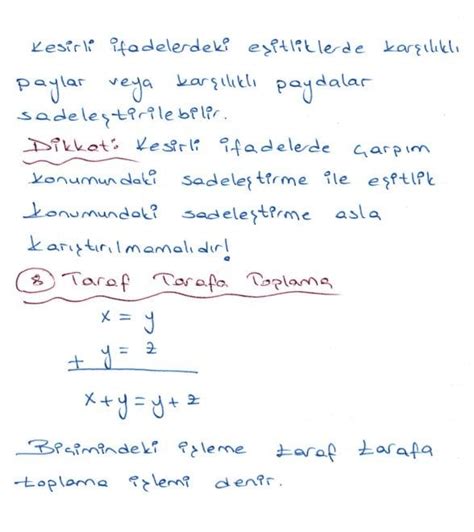 Kesirli ifadelerdeki eşitliklerde karşılıklı
paylar veya karşılıklı paydalar
sadeleştirilebilir.
Dikkat: Kesirli ifadelerde çarpım
konumundaki sadeleştirme ile eşitlik
konumundaki sadeleştirme asla
karıştırılmamalıdır!
8 Taraf Tarafa Toplama
x = y
+ y = z
x+y=y+z
Biçimindeki işleme taraf tarafa
toplama işlemi denir.